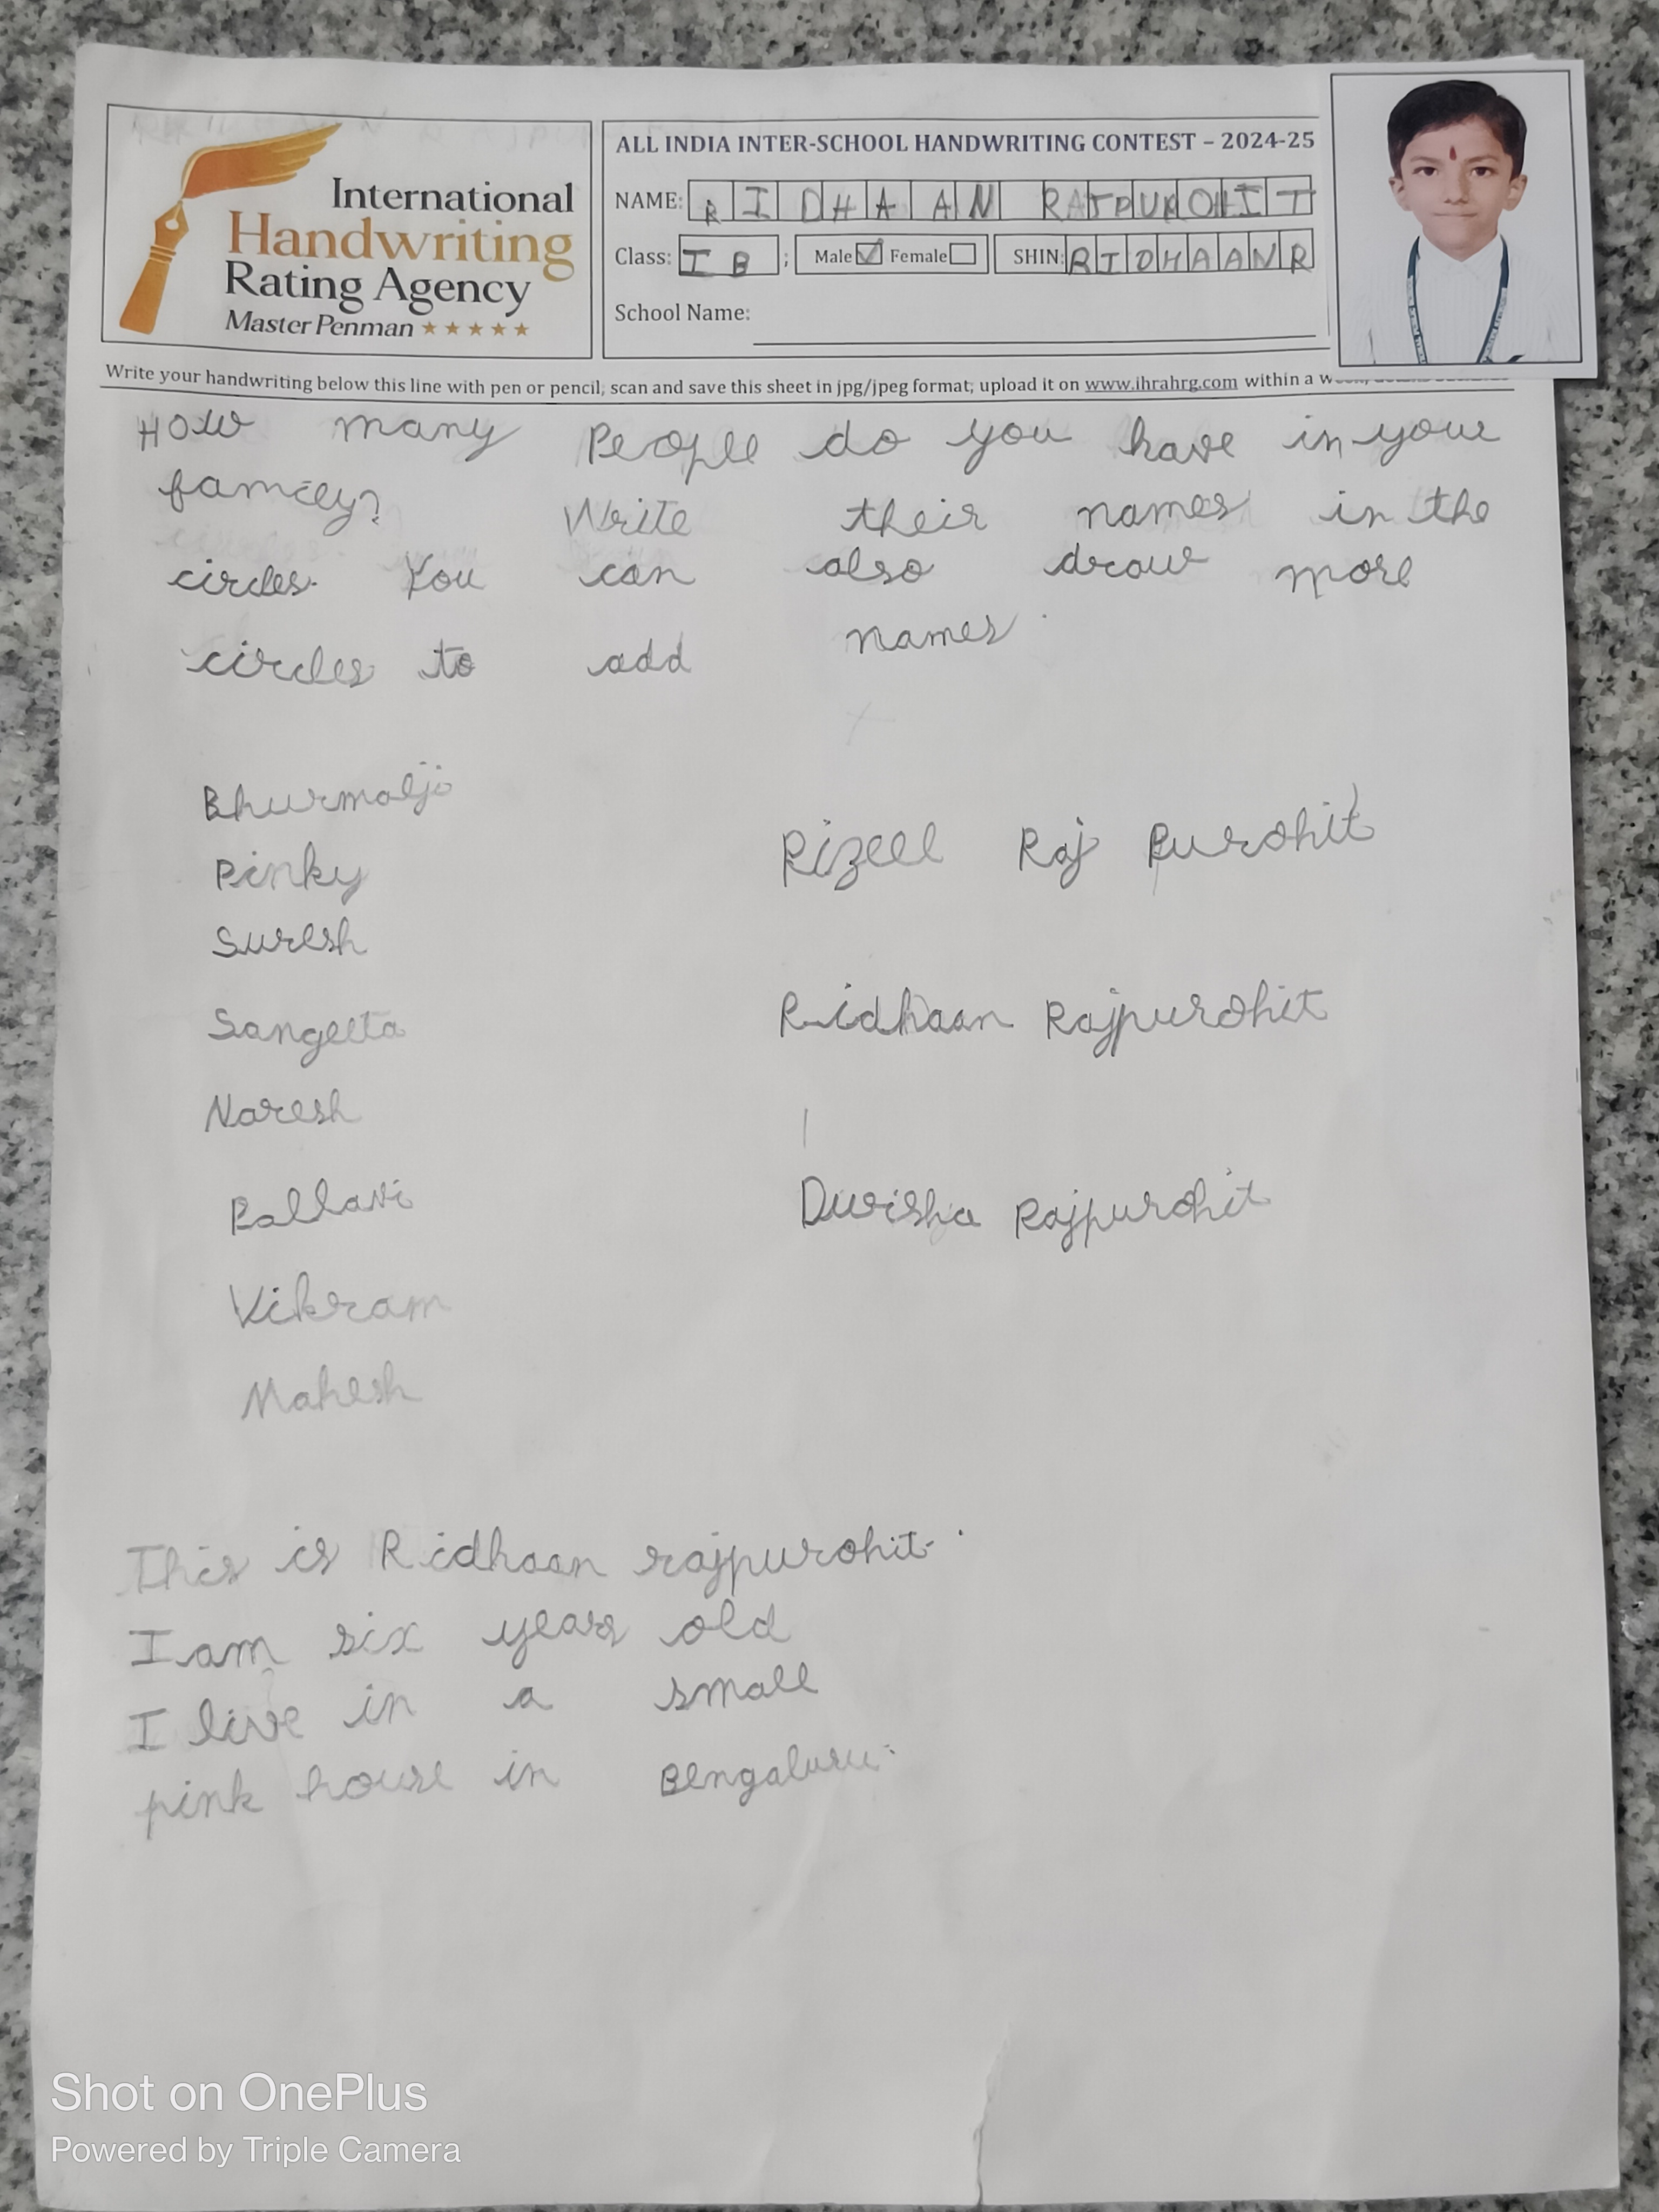 International
Handwriting
Rating Agency
Master Penman ★★★★★
ALL INDIA INTER-SCHOOL HANDWRITING CONTEST – 2024-25
NAME: RIDHAAN RAJPUROHIT
Class: I B ; Male ☑ Female ☐ SHIN: RIDHAANR
School Name:
Write your handwriting below this line with pen or pencil, scan and save this sheet in jpg/jpeg format; upload it on www.ihrahrg.com within a
How many People do you have in your
family? Write their names in the
circles. You can also draw more
circles to add names.
Bhurmalji
Pinky
Suresh
Sangeeta
Naresh
Pallavi
Vikram
Mahesh
Rizell Raj Purohit
Ridhaan Rajpurohit
Durisha Rajpurohit
This is Ridhaan rajpurohit.
I am six years old
I live in a small
pink house in Bengaluru.
Shot on OnePlus
Powered by Triple Camera